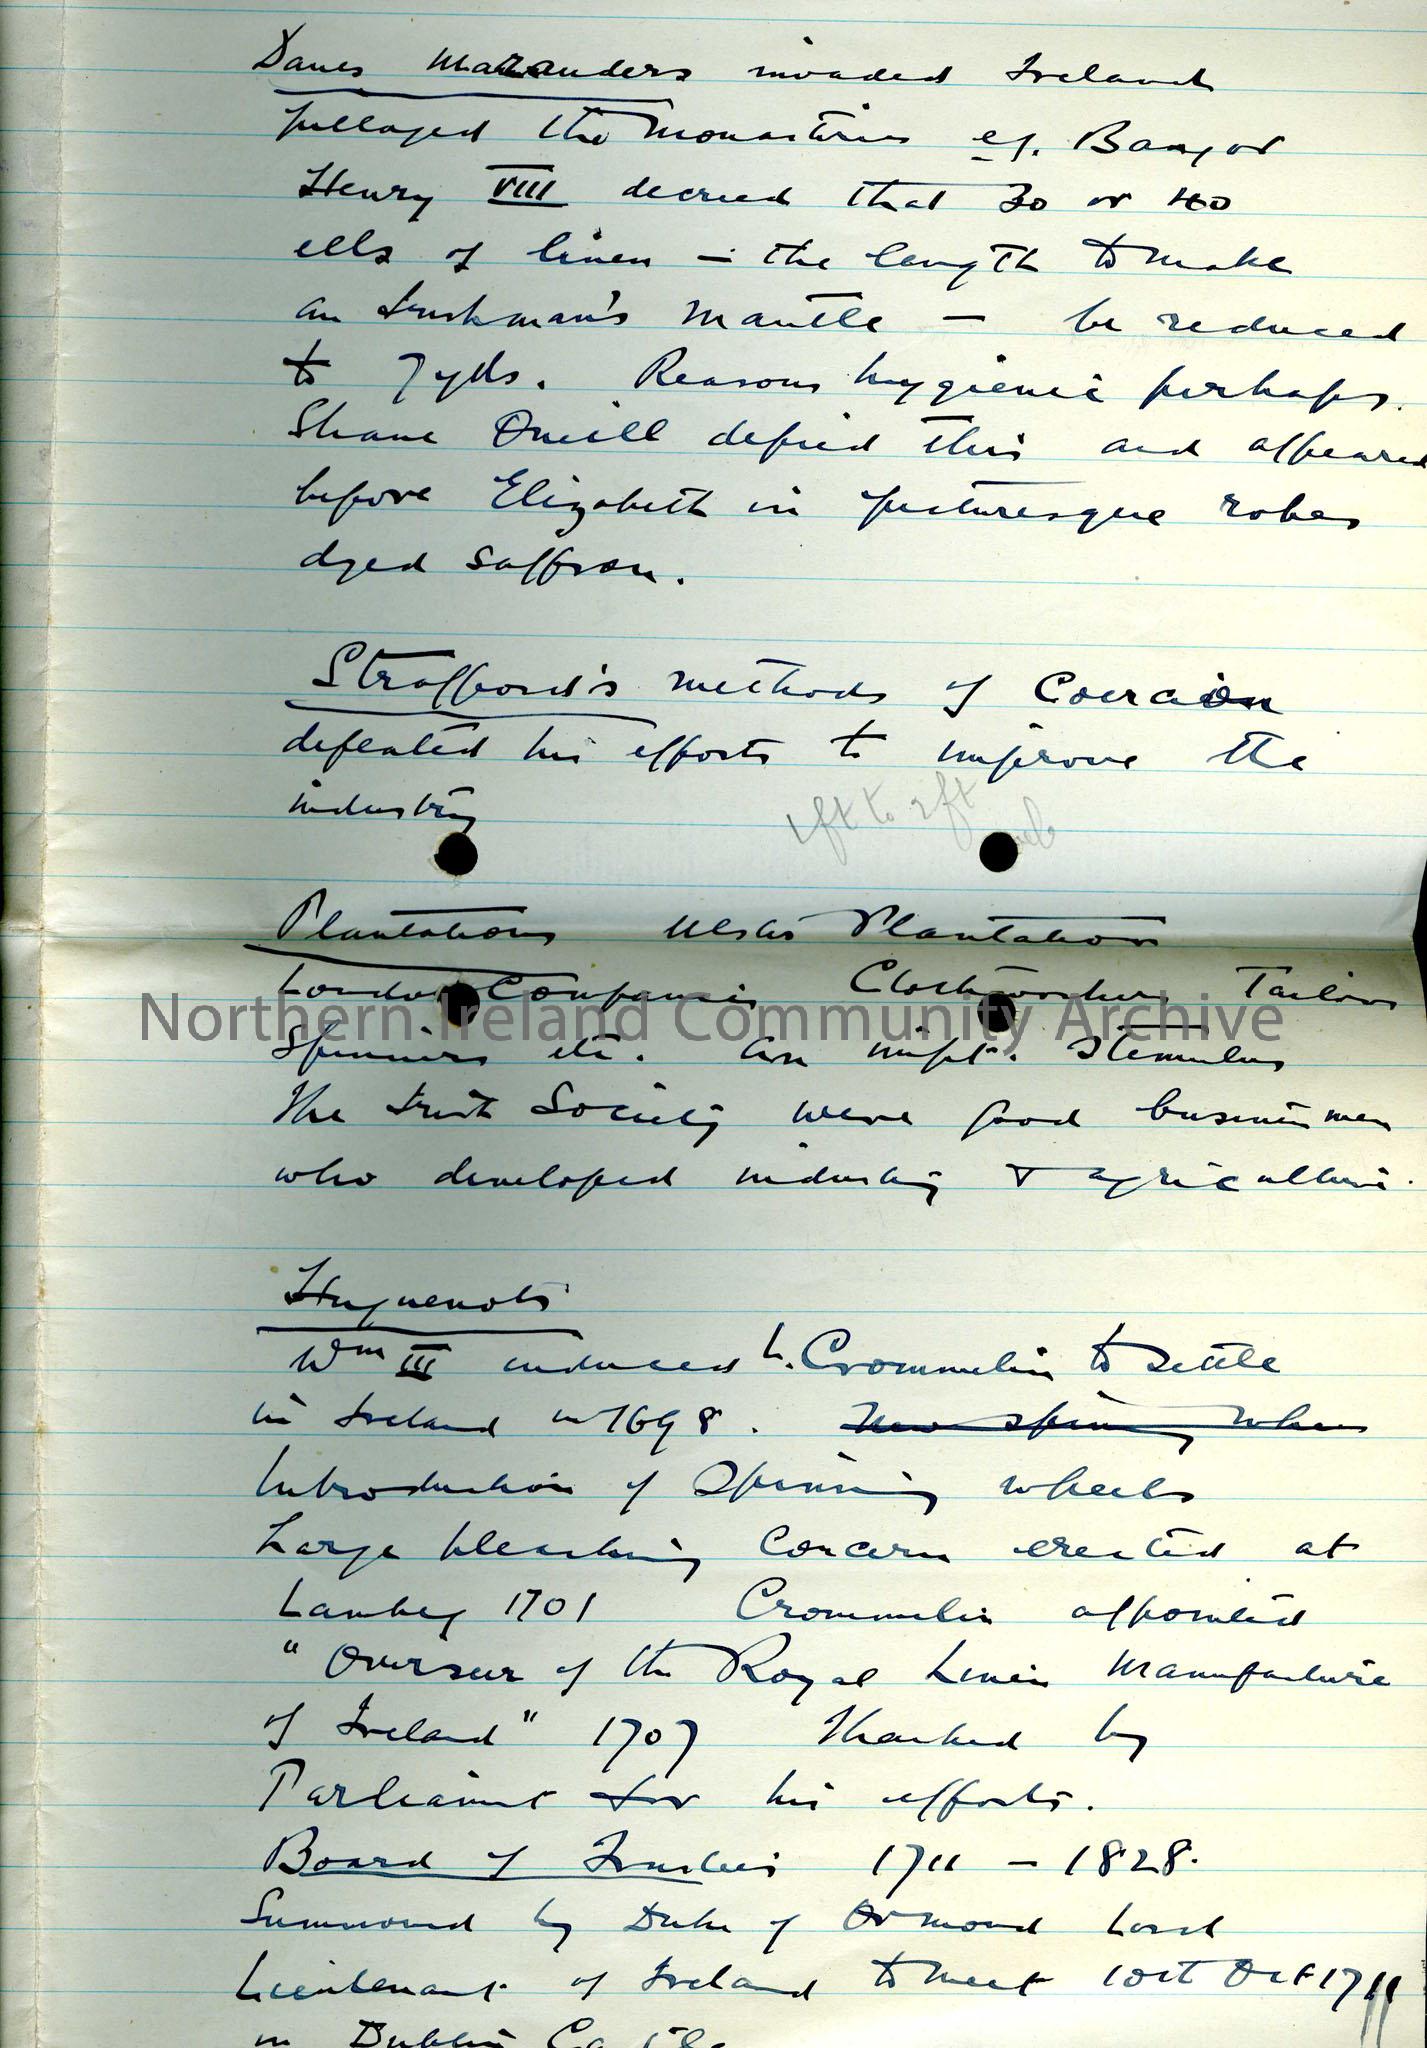 Danes Marauders invaded Ireland
pillaged the monasteries eg. Bangor
Henry VIII decreed that 30 or 40
ells of linen – the length to make
an Irishman's mantle – be reduced
to 7 yds. Reasons hygienic perhaps.
Shane Oneill defied this and appeared
before Elizabeth in picturesque robes
dyed saffron.
Strafford's methods of Coercion
defeated his efforts to improve the
industry
1ft to 2ft
Plantations Ulster Plantation
London Companies Clothworkers Tailors
Northern Ireland Community Archive
Spinners etc. an impt. stimulus
The Irish Society were good business men
who developed industry & agriculture.
Huguenots
Wm III induced L. Crommelin to settle
in Ireland in 1698. New spinning when
Introduction of Spinning wheels
Large bleaching concern erected at
Lambeg 1701 Crommelin appointed
"Overseer of the Royal Linen Manufacture
of Ireland" 1707 Thanked by
Parliament for his efforts.
Board of Trustees 1711 – 1828.
Summoned by Duke of Ormond Lord
Lieutenant of Ireland to meet 10th Oct 1711
in Dublin Castle